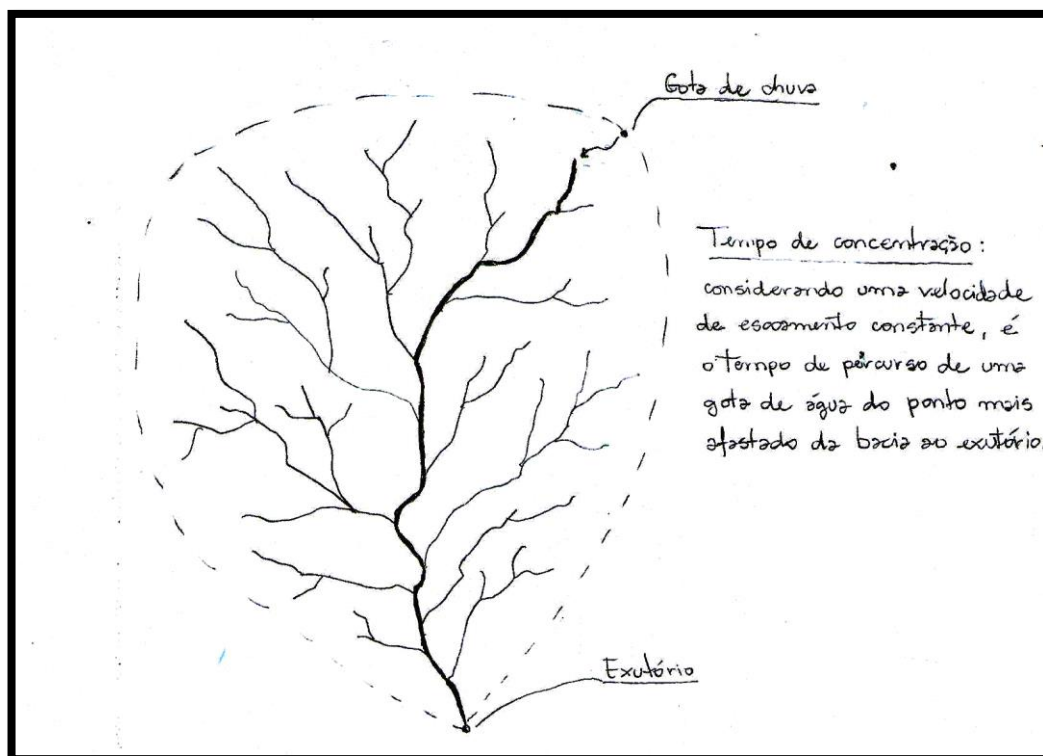 Gota de chuva
Tempo de concentração:
considerando uma velocidade
de escoamento constante, é
o tempo de percurso de uma
gota de água do ponto mais
afastado da bacia ao exutório.
Exutório